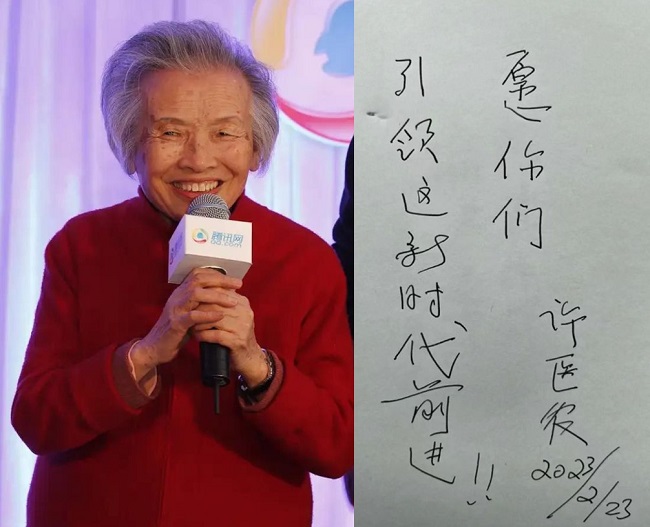 腾讯网
QQ.com
愿你们
引领这新时代前进!!
许医农
2023/2/23